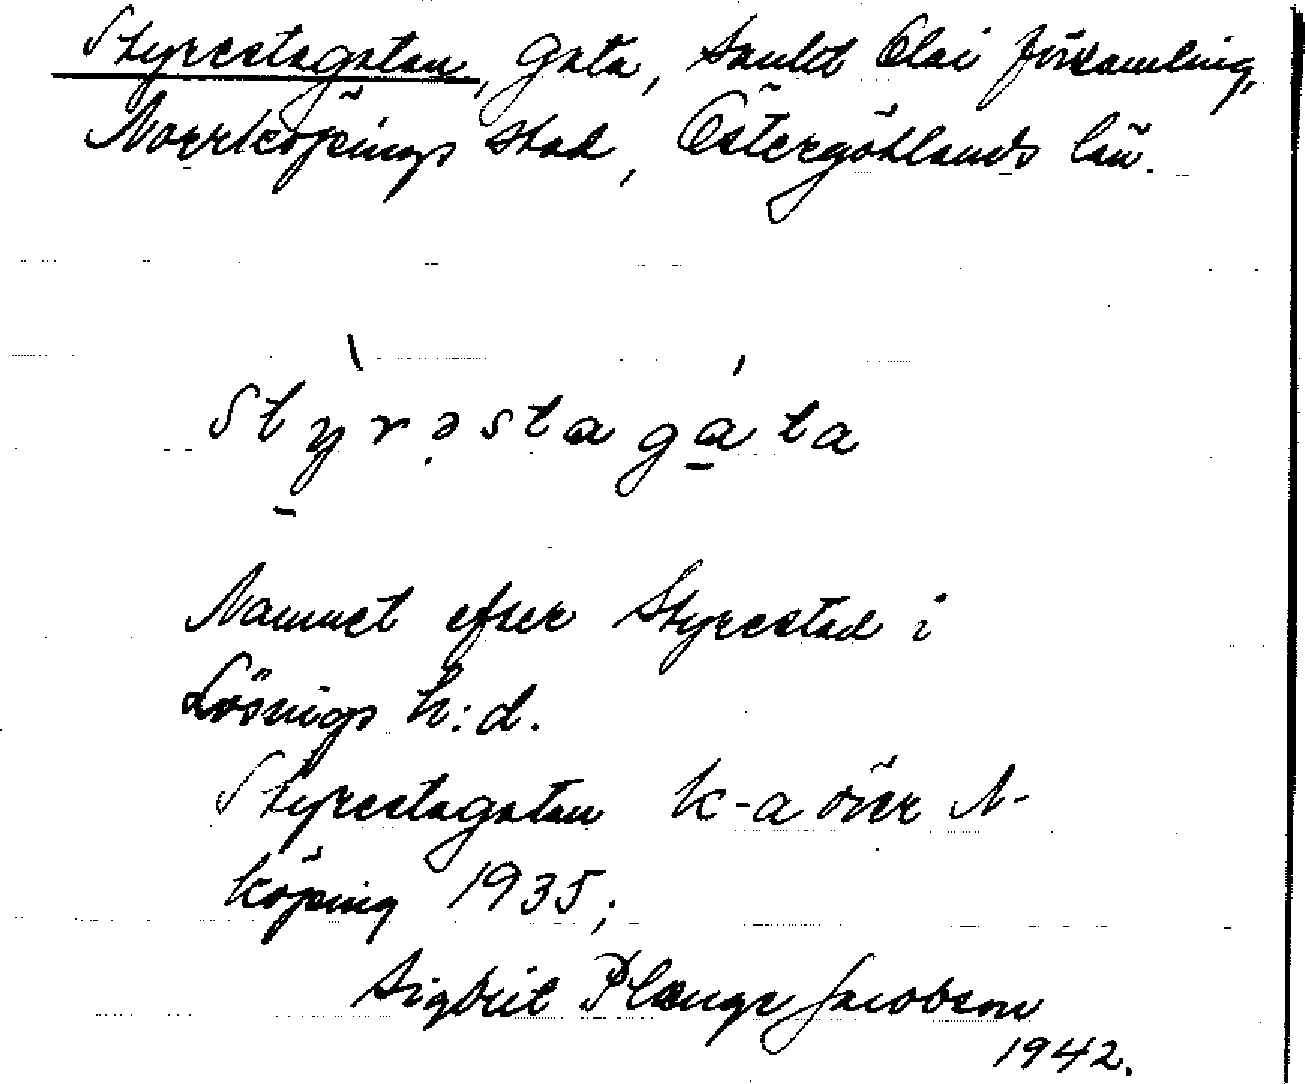 Styrestagatan, gata, Sankt Olai församling,
Norrköpings stad, Östergötlands län.
stỳrəstagáta
Namnet efter Styrestad i
Lösings h:d.
Styrestagatan k-a över N-
köping 1935;
Sigbrit Plænge Jacobson
1942.